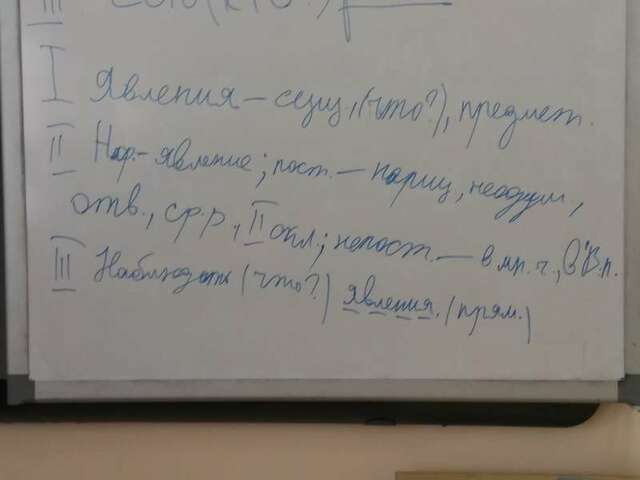 III
I Явления – сущ., (что?), предмет.
II Н.ф. – явление; пост. – нариц, неодуш,
отв., ср.р, II скл; непост. – в мн. ч., в В.п.
III Наблюдать (что?) явления. (прям.)